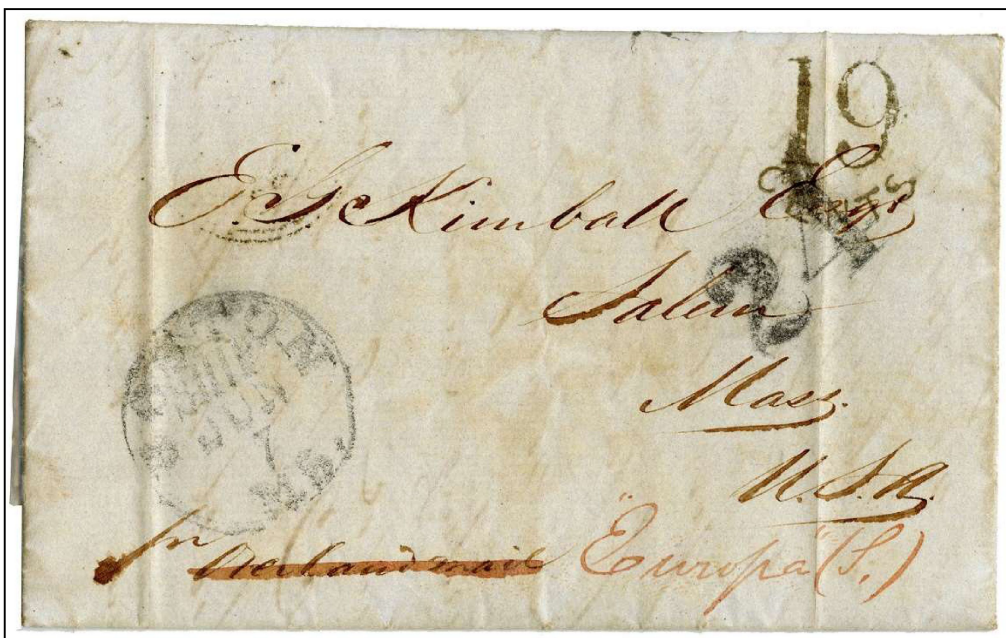 19
CENTS
24
E. S. Kimball Esqr
Salem
Mass.
U.S.A.
BOSTON
SHIP
JUN
MS.
pr Overland mail "Europa" (S.)